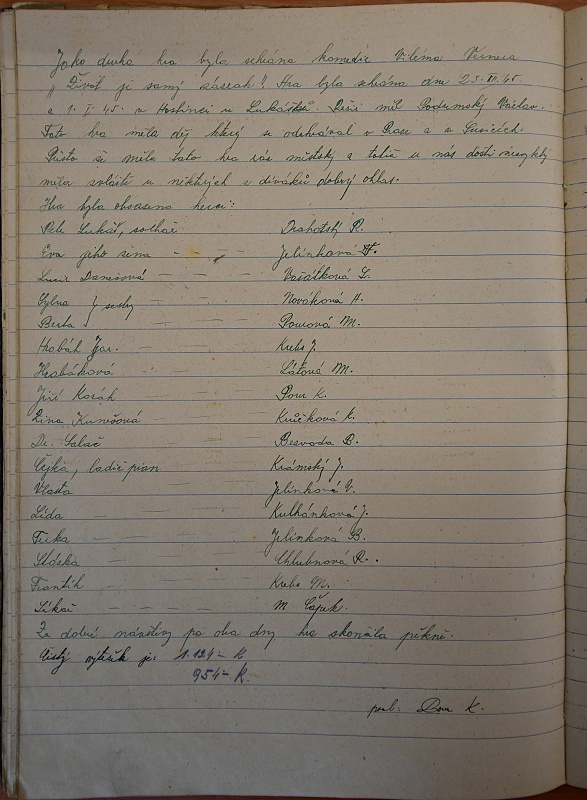 Jako druhá hra byla sehrána komedie Viléma Wernera
„Život je samý zázrak". Hra byla sehrána dne 25. XII. 45
a 1. I. 45. v Hostinci u Lukášků. Režii měl Podzimský Václav.
Tato hra měla děj který se odehrával v Praze a v Sušicích.
Přesto že měla tato hra ráz městský a tolik u nás dosti nezvyklý
měla zvláště u některých z diváků dobrý ohlas.
Hra byla obsazena herci:
Petr Lukáš, sochař Drahotský R.
Eva jeho žena - - - Jelínková H.
Lucie Danešová - - - Vošátková L.
Sylva } sestry - - - Nováková H.
Berta Pourová M.
Hrabák Jar. - - - Krebs J.
Hrabáková - - - Látová M.
Jiří Kosák - - - Pour K.
Zina Kunešová Krůčková K.
Dr. Salač - - - Bezvoda B.
Čejka, ladič pian Krámský J.
Vlasta - - - Jelínková V.
Lída - - - Kulhánková J.
Ferka - - - Jelínková B.
Chlubnová R.
Frantík - - - Krebs M.
- - - M Čapek.
Za dobré návštěvy po oba dny hra skončila pěkně.
Čistý výtěžek je: 1.124 - K
954 - K.
K.